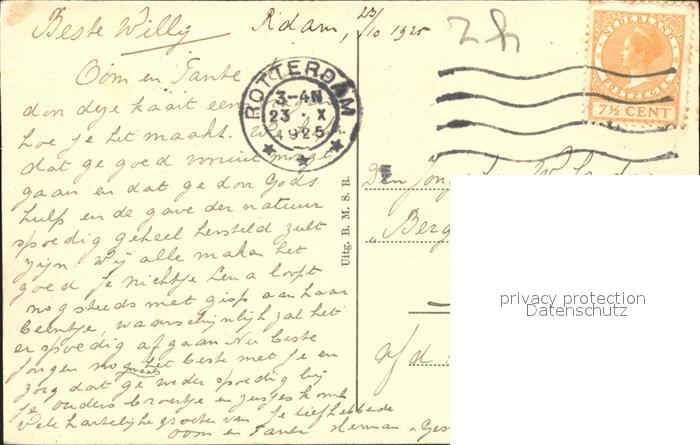 Beste Willy Rdam, 23/10 1925
2h
NEDERLAND
POSTZEGEL
7½ CENT
ROTTERDAM
3-4N
23 X
1925
Oom en Tante
don deze kaart een
hoe je het maakt.
dat ge goed vooruit moogt
gaan en dat ge don Gods
hulp en de gave der natuur
spoedig geheel hersteld zult
zijn. Wij alle maken het
goed je nichtje Lena loopt
nog steeds met gips aan haar
beentje, waarschijnlijk zal het
er spoedig af gaan. Nu beste
jongen nog maals het beste met je en
zorg dat ge weder spoedig bij
je ouders broertje en zusjes komt
Vele hartelijke groeten van je liefhebbende
Oom en Tante Herman
Uitg. B. M. S. R.
Den Jong
Berg
Afd
privacy protection
Datenschutz